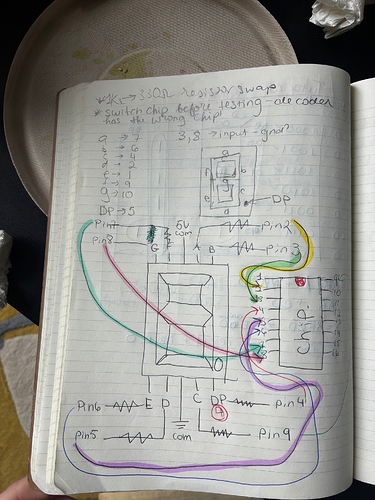 * 1K → 330Ω resistor swap
* switch chip before testing - decoder
has the wrong chip!
3,8 → input - gnd
a → 7
b → 6
c → 4
d → 2
e → 1
f → 9
g → 10
DP → 5
a
f b
g
e c
d
DP
Pin7
Pin8
5V
com
Pin2
Pin3
G F A B
Chip
Pin6 E D C DP Pin4
Pin5 com Pin9